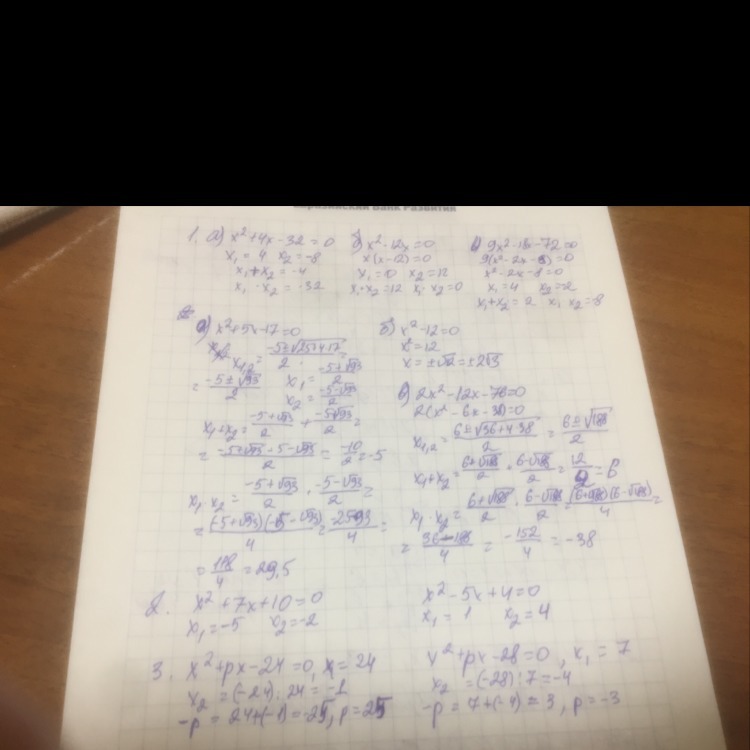 Евразийский Банк Развития
1. а) x²+4x-32=0
x₁ = 4 x₂ = -8
x₁+x₂ = -4
x₁ · x₂ = -32
б) x²-12x=0
x(x-12)=0
x₁ = 0 x₂ = 12
x₁+x₂=12 x₁·x₂=0
9(x²-2x-8)=0
x²-2x-8=0
x₁=4 x₂=-2
x₁+x₂=2 x₁ x₂=-8
а) x²+5x-17=0
x₁,₂= (-5±√(25+4·17))/2 =
= (-5±√93)/2 x₁ = (-5+√93)/2
x₂ = (-5-√93)/2
x₁+x₂ = (-5+√93)/2 + (-5-√93)/2 =
= (-5+√93-5-√93)/2 = -10/2 = -5
x₁·x₂ = (-5+√93)/2 · (-5-√93)/2 =
= (-5+√93)(-5-√93)/4 =
= 118/4 = 29,5
б) x²-12=0
x²=12
x = ±√12 = ±2√3
в) 2x²-12x-76=0
2(x²-6x-38)=0
x₁,₂ = (6±√(36+4·38))/2 = (6±√188)/2
x₁+x₂ = (6+√188)/2 + (6-√188)/2 = 12/2 = 6
x₁·x₂ = (6+√188)/2 · (6-√188)/2 = (6+√188)(6-√188)/4 =
= (36-188)/4 = -152/4 = -38
2. x²+7x+10=0
x₁=-5 x₂=-2
x²-5x+4=0
x₁ = 1 x₂ = 4
3. x²+px-24=0, x=24
x₂ = (-24):24 = -1
-p = 24+(-1)=-25, p=25
x²+px-28=0, x₁ = 7
x₂ = (-28):7=-4
-p = 7+(-4) = 3, p=-3